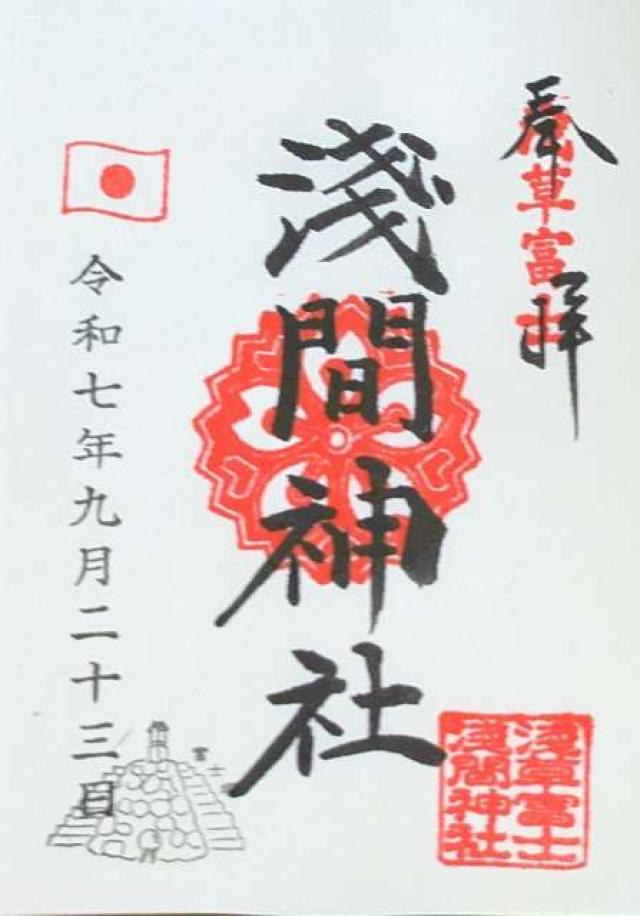 奉拝
浅草富士
淺間神社
淺草富士
淺間神社
令和七年九月二十三日
富士